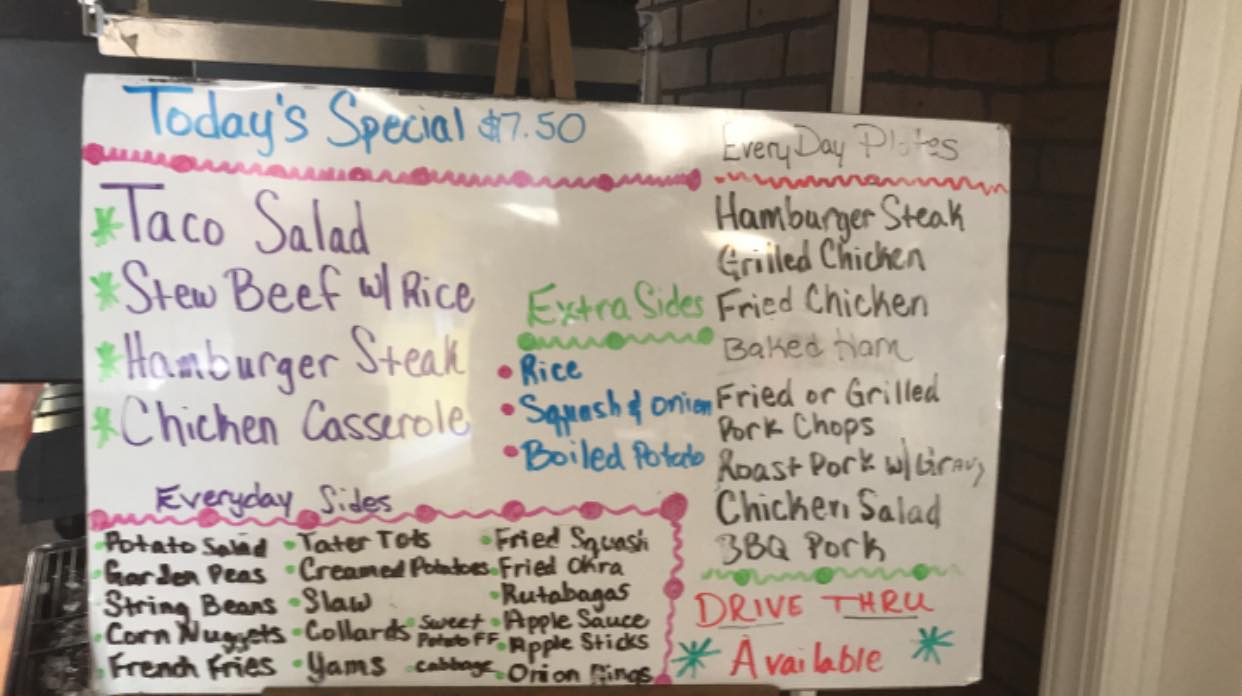 Today's Special $7.50
*Taco Salad
*Stew Beef w/ Rice
*Hamburger Steak
*Chicken Casserole
Extra Sides
• Rice
• Squash & onion
• Boiled Potato
EveryDay Plates
Hamburger Steak
Grilled Chicken
Fried Chicken
Baked Ham
Fried or Grilled
Pork Chops
Roast Pork w/ Gravy
Chicken Salad
BBQ Pork
DRIVE THRU
* Available *
Everyday Sides
• Potato Salad
• Garden Peas
String Beans
• Corn Nuggets
• French Fries
• Tater Tots
• Creamed Potatoes
• Slaw
• Collards
• Yams
• Sweet
Potato FF
• cabbage
• Fried Squash
• Fried Okra
• Rutabagas
• Apple Sauce
• Apple Sticks
• Onion Rings